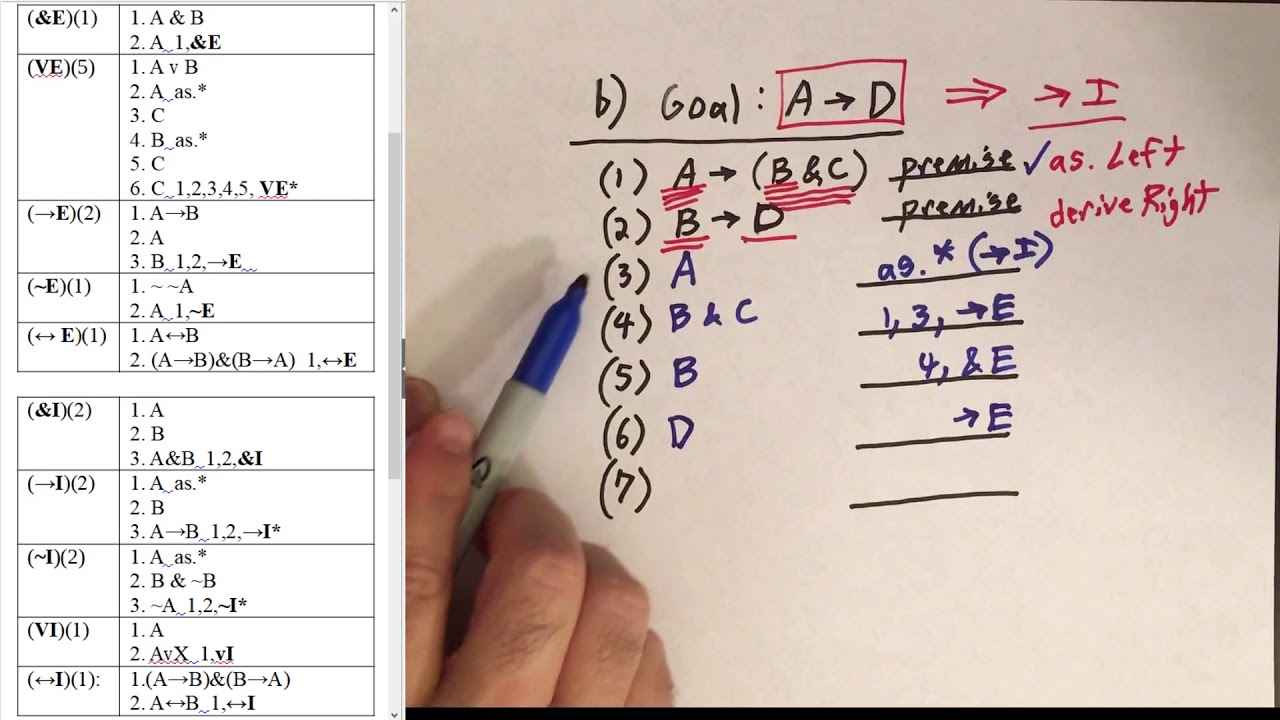 (&E)(1)
1. A & B
2. A 1,&E
(VE)(5)
1. A v B
2. A as.*
3. C
4. B as.*
5. C
6. C 1,2,3,4,5, VE*
(→E)(2)
1. A→B
2. A
3. B 1,2,→E
(~E)(1)
1. ~ ~A
2. A 1,~E
(↔ E)(1)
1. A↔B
2. (A→B)&(B→A) 1,↔E
(&I)(2)
1. A
2. B
3. A&B 1,2,&I
(→I)(2)
1. A as.*
2. B
3. A→B 1,2,→I*
(~I)(2)
1. A as.*
2. B & ~B
3. ~A 1,2,~I*
(VI)(1)
1. A
2. AvX 1,vI
(↔I)(1):
1.(A→B)&(B→A)
2. A↔B 1,↔I
b) Goal: A → D ⇒ → I
(1) A → (B & C) premise ✓ as. Left
(2) B → D premise derive Right
(3) A as. * (→I)
(4) B & C 1, 3, →E
(5) B 4, & E
(6) D → E
(7)